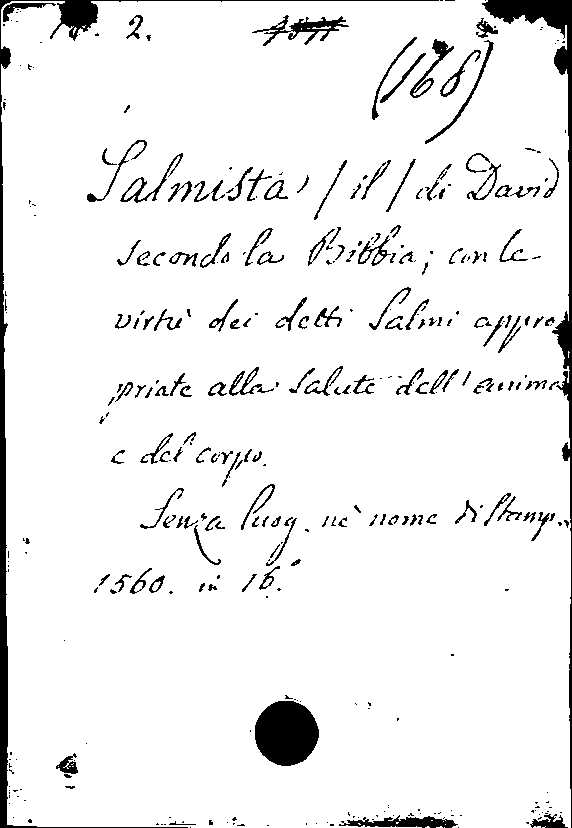 2.
(168)
Salmista / il / di David
secondo la Bibbia; con le
virtù dei detti Salmi appro
priate alla salute dell'anima
e del corpo.
Senza luog. nè nome di Stamp.
1560. in 16.°